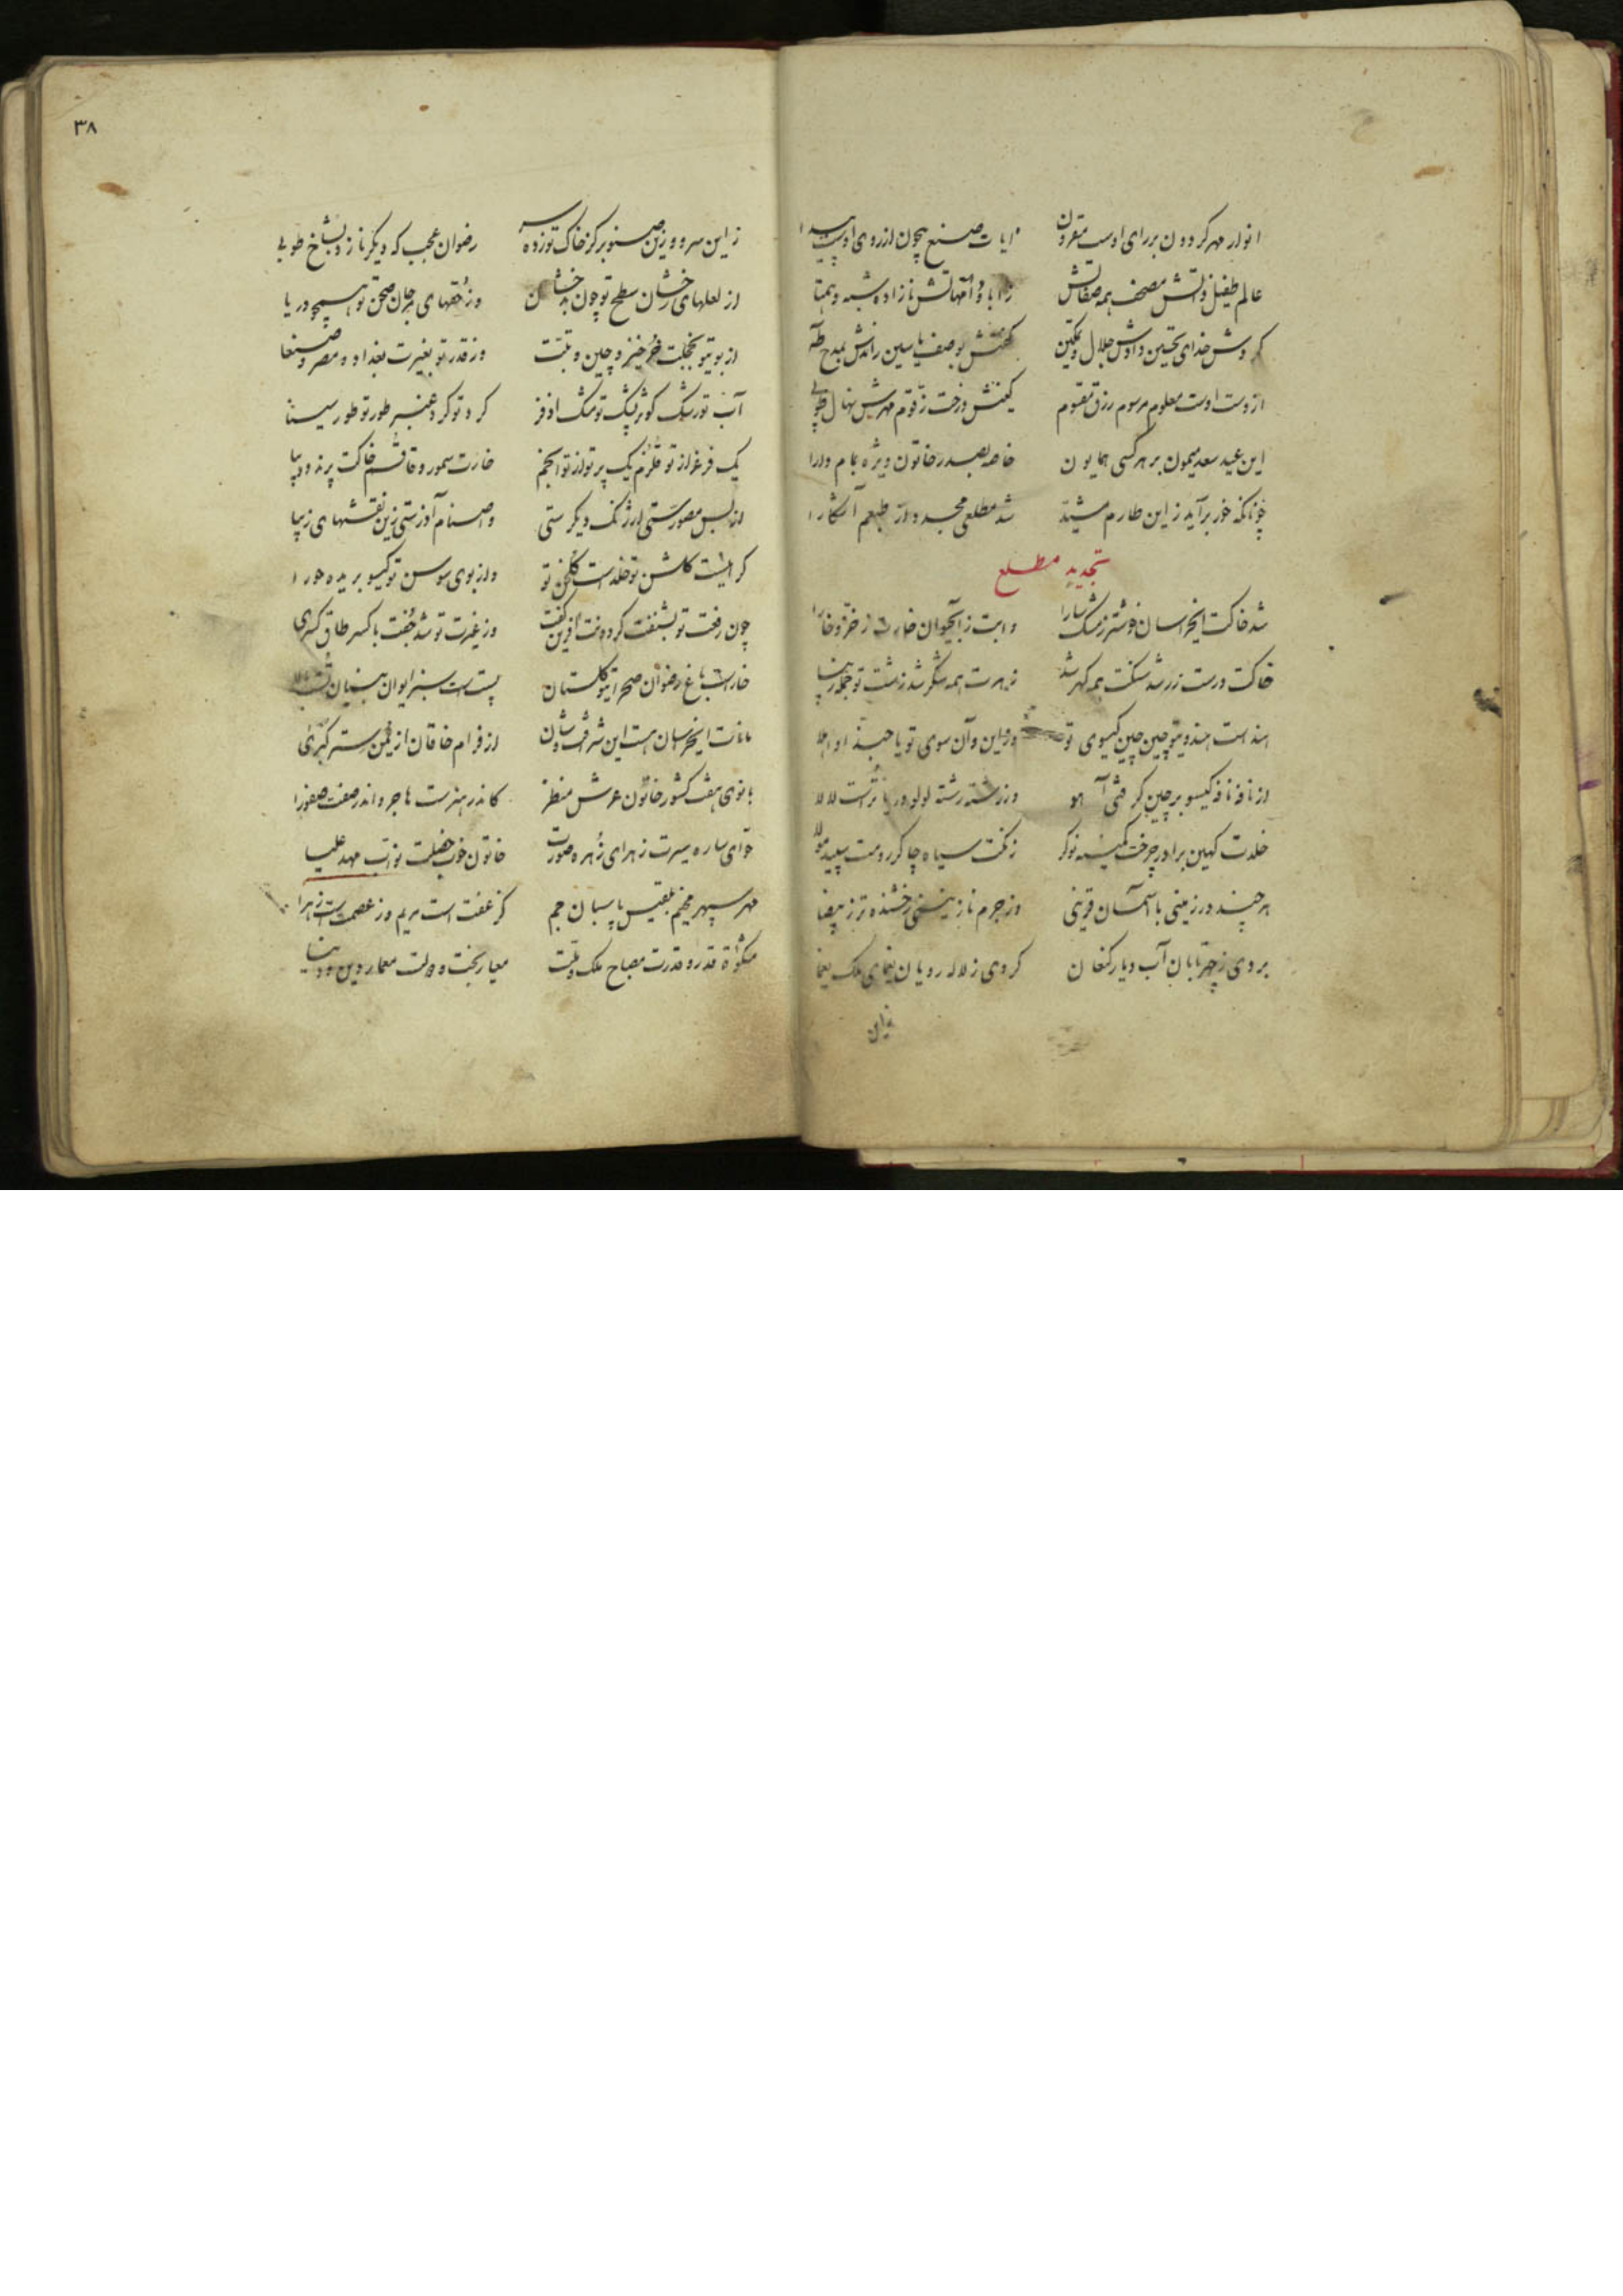 انوار مهر گردون بر رای اوست مقرون آیات صنع بیچون از روی اوست پیدا
عالم طفیل ذاتش مصحف همه صفاتش ز آبا و امهاتش نازاده شبه و همتا
کردش خدای تحسین دادش جلال و تمکین گفتش بوصف یاسین راندش بمدح طه
از دست اوست معلوم مرسوم رزق مقسوم کینش درخت زقوم مهرش نهال طوبی
این عید سعد میمون بر هر کسی همایون خاصه بصدر خاتون ویژه بمام دارا
چونانکه خور برآید زین طارم مشید شد مطلعی مجدد از طبعم آشکارا
تجدید مطلع
شد خاکت ایخراسان خوشتر ز مشک سارا و آبت ز آبحیوان خارت ز خز و خارا
خاکت درست زر شد سنگت همه گهر شد زهرت همه شکر شد زشت تو جمله زیبا
هند است هندوی تو چین چین گیسوی تو وز این و آن سوی تو یا حبذا و اهلا
از نافه نافه گیسو بر چین گرفتی آهو وز رشته رشته لولو دریا تراست لالا
خلدت کهین برادر چرخت کمینه نوکر زنگت سیاه چاکر رومت سپید مولا
هر چند در زمینی با آسمان قرینی وز جرم نازنینی رخشنده تر ز بیضا
بردی ز چهر تابان آب دیار کنعان کردی ز لاله رویان یغمای ملک یغما
زاین
۳۸
زاین سرو و زین صنوبر کز خاک تو زده سر رضوان عجب که دیگر نازد بشاخ طوبی
از لعلهای رخشان سطح تو چون بدخشان وز حقهای مرجان صحن تو همچو دریا
از بوی تو بخجلت خرخیز و چین و تبت وز قدر تو بغیرت بغداد و مصر و صنعا
آب تو رشک کوثر پشک تو مشک اذفر گرد تو گرد عنبر طور تو طور سینا
یک فرغر از تو قلزم یک پرتو از تو انجم خارت سمور و قاقم خاکت پرند و دیبا
از بس مصورستی ارژنگ دیگرستی و اصنام آذرستی زین نقشهای زیبا
گر اینست گلشن تو خلد است گلخن تو واز بوی سوسن تو گیسو بریده حورا
چون رفعت تو بشنفت گردونت آفرین گفت وز غیرت تو شد جفت با کسر طاق کسری
خار است باغ رضوان صحرای تو گلستان پست است سبز ایوان بنیان تست بالا
مانات ایخراسان هست این شرف و شان از فر ام خاقان از یمن ستر کبری
بانوی هفت کشور خاتون عرش منظر کاندر هنرست هاجر و اندر صفت صفورا
حوای ساره سیرت زهرای زهره صورت خاتون خوب خصلت نواب مهد علیا
مهر سپهر مخیم بلقیس پاسبان جم کز عفت است مریم وز عصمت است زهرا
مشکوة قدر و قدرت مصباح ملک و ملت معیار بخت و دولت معمار دین و دنیا